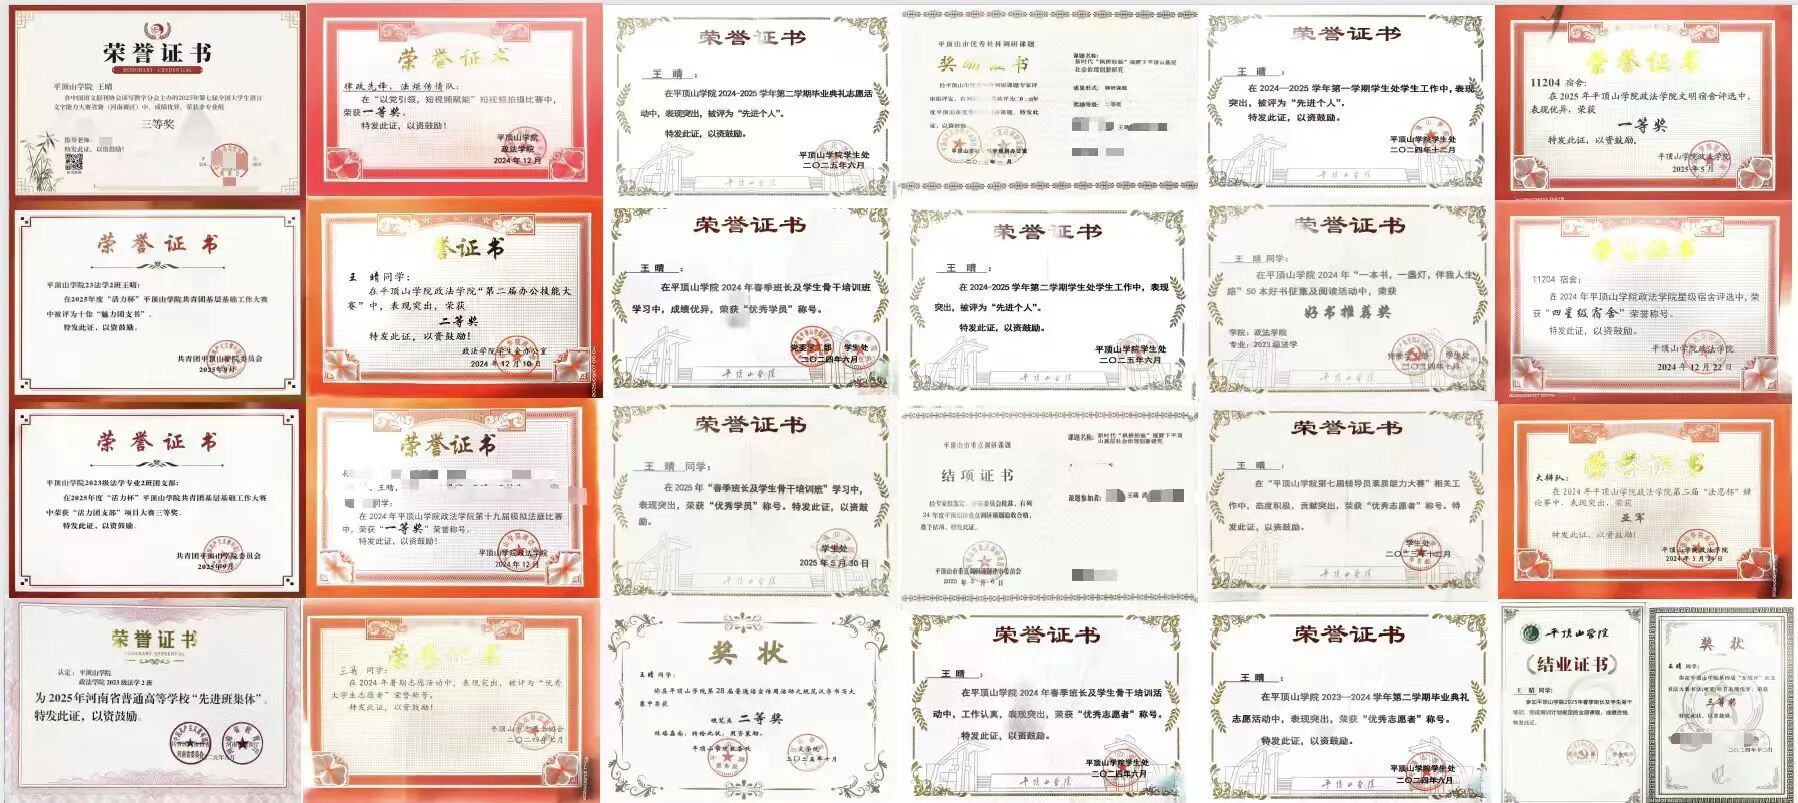 荣誉证书
HONORARY CREDENTIAL
平顶山学院 王晴
在中国语文报刊协会读写教学分会主办的2025年第七届全国大学生语言
文字能力大赛省赛（河南赛区）中，成绩优异，荣获非专业组
三等奖
指导老师：
特发此证，以资鼓励！
荣誉证书
律政先锋，法姬传情队：
在“以党引领，短视频赋能”短视频拍摄比赛中，
荣获一等奖。
特发此证，以资鼓励！
平顶山学院
政法学院
2024年12月
荣誉证书
王 晴 ：
在平顶山学院2024-2025学年第二学期毕业典礼志愿活
动中，表现突出，被评为“先进个人”。
特发此证，以资鼓励。
平顶山学院学生处
二〇二五年六月
平顶山市优秀社科调研课题
奖励证书
课题名称：
新时代“枫桥经验”视野下平顶山基层
社会治理创新研究
成果形式：调研课题
奖励等级：二等奖
王晴
荣誉证书
王 晴 ：
在2024—2025学年第一学期学生处学生工作中，表现
突出，被评为“先进个人”。
特发此证，以资鼓励。
平顶山学院学生处
二〇二四年十二月
荣誉证书
11204 宿舍：
在2025年平顶山学院政法学院文明宿舍评选中，
表现优异，荣获
一等奖
特发此证，以资鼓励。
平顶山学院政法学院
2025年5月
荣誉证书
平顶山学院23法学2班王晴：
在2025年度“活力杯”平顶山学院共青团基层基础工作大赛
中被评为十佳“魅力团支书”。
特发此证，以资鼓励。
共青团平顶山学院委员会
2025年9月
誉证书
王 晴同学：
在平顶山学院政法学院“第二届办公技能大
赛”中，表现突出，荣获
二等奖
特发此证，以资鼓励！
政法学院学生会办公室
2024年12月10日
荣誉证书
王 晴 ：
在平顶山学院2024年春季班长及学生骨干培训班
学习中，成绩优异，荣获“优秀学员”称号。
特发此证，以资鼓励。
党委学工部 学生处
二〇二四年六月
荣誉证书
王 晴 ：
2024-2025学年第二学期学生处学生工作中，表现
突出，被评为“先进个人”。
特发此证，以资鼓励。
平顶山学院学生处
二〇二五年六月
荣誉证书
王 晴 同学：
在平顶山学院2024年“一本书，一盏灯，伴我人生
路”50本好书征集及阅读活动中，荣获
好书推荐奖
学院：政法学院
专业：2023级法学
学生处
二〇二四年十月
证书
11204 宿舍：
在2024年平顶山学院政法学院星级宿舍评选中，荣
获“四星级宿舍”荣誉称号。
特发此证，以资鼓励。
平顶山学院政法学院
2024年12月22日
荣誉证书
平顶山学院2023级法学专业2班团支部：
在2025年度“活力杯”平顶山学院共青团基层基础工作大赛
中荣获“活力团支部”项目大赛三等奖。
特发此证，以资鼓励。
共青团平顶山学院委员会
2025年9月
荣誉证书
王晴、
同学：
在2024年平顶山学院政法学院第十九届模拟法庭比赛
中，荣获“一等奖”荣誉称号。
特发此证，以资鼓励！
平顶山学院政法学院
2024年12月
荣誉证书
王 晴 同学：
在2025年“春季班长及学生骨干培训班”学习中，
表现突出，荣获“优秀学员”称号。特发此证，以资鼓
励。
学生处
2025年5月30日
平顶山市重点调研课题
结项证书
经专家组鉴定，评审委员会批准，有列
24年度平顶山市重点调研课题验收合格，
准予结项，特发此证。
平顶山市重点调研课题评审委员会
课题名称：新时代“枫桥经验”视野下平顶
山基层社会治理创新研究
课题参加者：
王晴
荣誉证书
王 晴 ：
在“平顶山学院第七届辅导员素质能力大赛”相关工
作中，态度积极，贡献突出，荣获“优秀志愿者”称号。特
发此证，以资鼓励。
学生处
二〇二三年十二月
荣誉证书
大辩队：
在2024年平顶山学院政法学院第二届“法愿杯”辩
论赛中，表现突出，荣获
亚军
特发此证，以资鼓励！
平顶山学院政法学院
荣誉证书
HONORARY CREDENTIAL
认定：平顶山学院
政法学院2023级法学2班
为2025年河南省普通高等学校“先进班集体”。
特发此证，以资鼓励。
同学：
在2024年暑期志愿活动中，表现突出，被评为“优秀
大学生志愿者”荣誉称号。
特发此证，以资鼓励！
奖状
王晴同学：
你在平顶山学院第28届普通话宣传周活动之规范汉字书写大
赛中荣获
硬笔类 二等奖
殊堪嘉尚，特给此状，用资策励。
平顶山学院教务处
文学院
二〇二五年十月
荣誉证书
王 晴 ：
在平顶山学院2024年春季班长及学生骨干培训活
动中，工作认真，表现突出，荣获“优秀志愿者”称号。
特发此证，以资鼓励。
平顶山学院学生处
二〇二四年六月
荣誉证书
王 晴 ：
在平顶山学院2023—2024学年第二学期毕业典礼
志愿活动中，表现突出，荣获“优秀志愿者”称号。
特发此证，以资鼓励。
平顶山学院学生处
二〇二四年六月
平顶山学院
结业证书
王 晴 同学：
参加平顶山学院2025年春季班长及学生骨干
培训，完成培训计划规定的全部课程，成绩合格，
特发此证。
奖状
王晴同学：
三等奖
特发此状，以资鼓励。